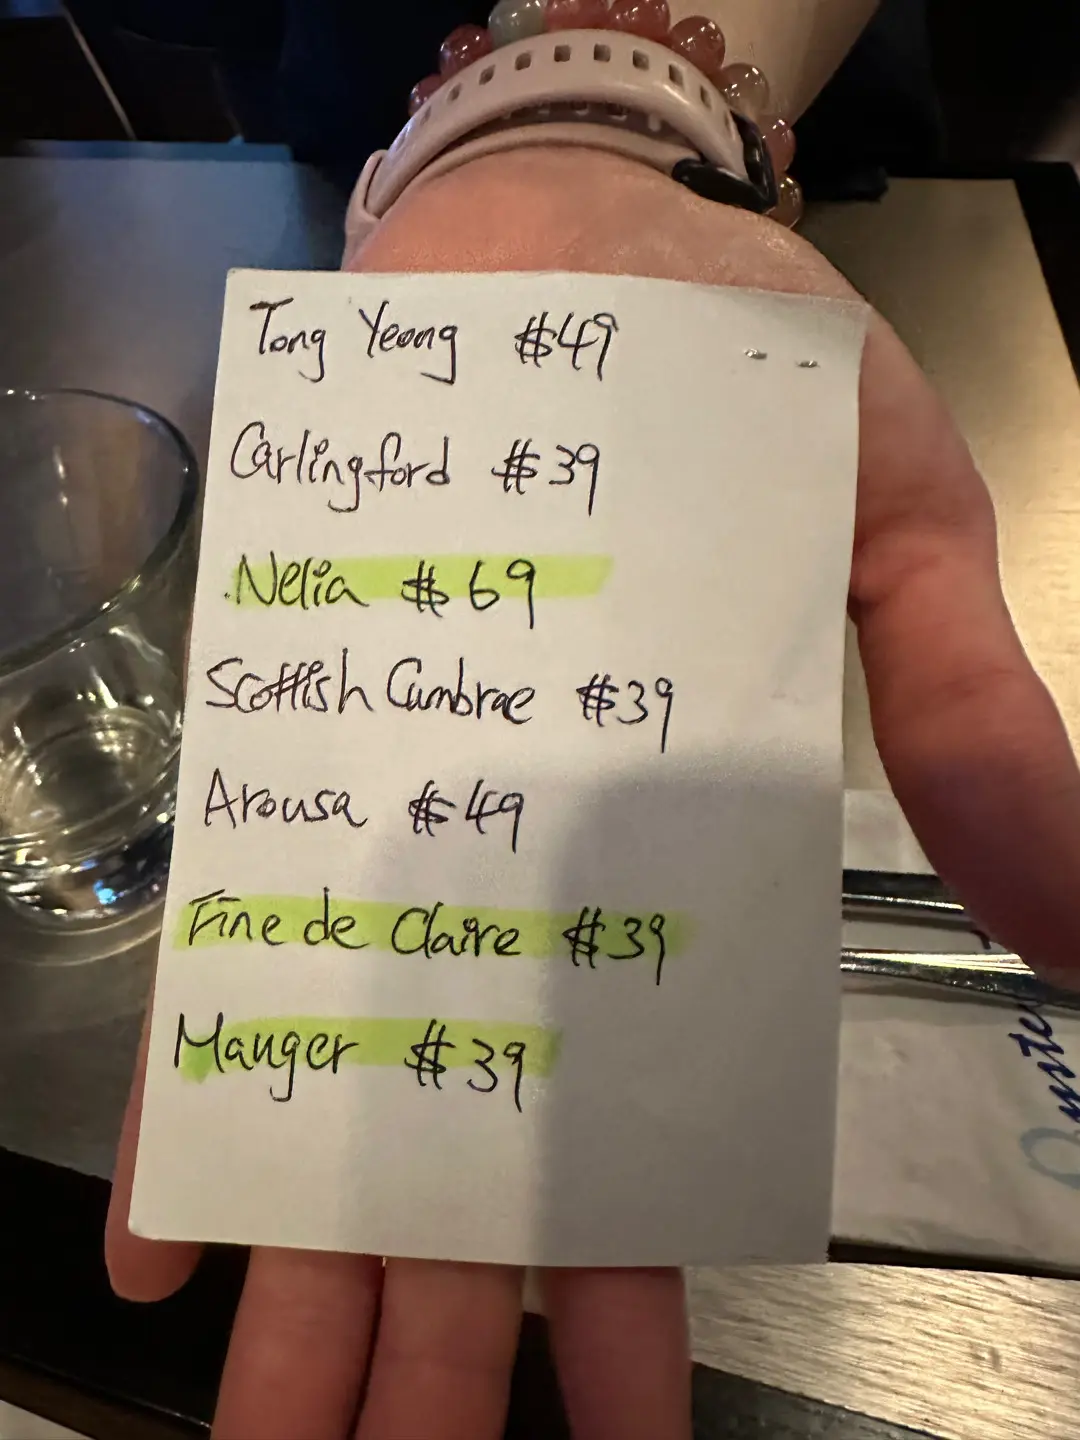 Tong Yeong $49
Carlingford $39
Nelia $69
Scottish Cumbrae $39
Arousa $49
Fine de Claire $39
Mauger $39